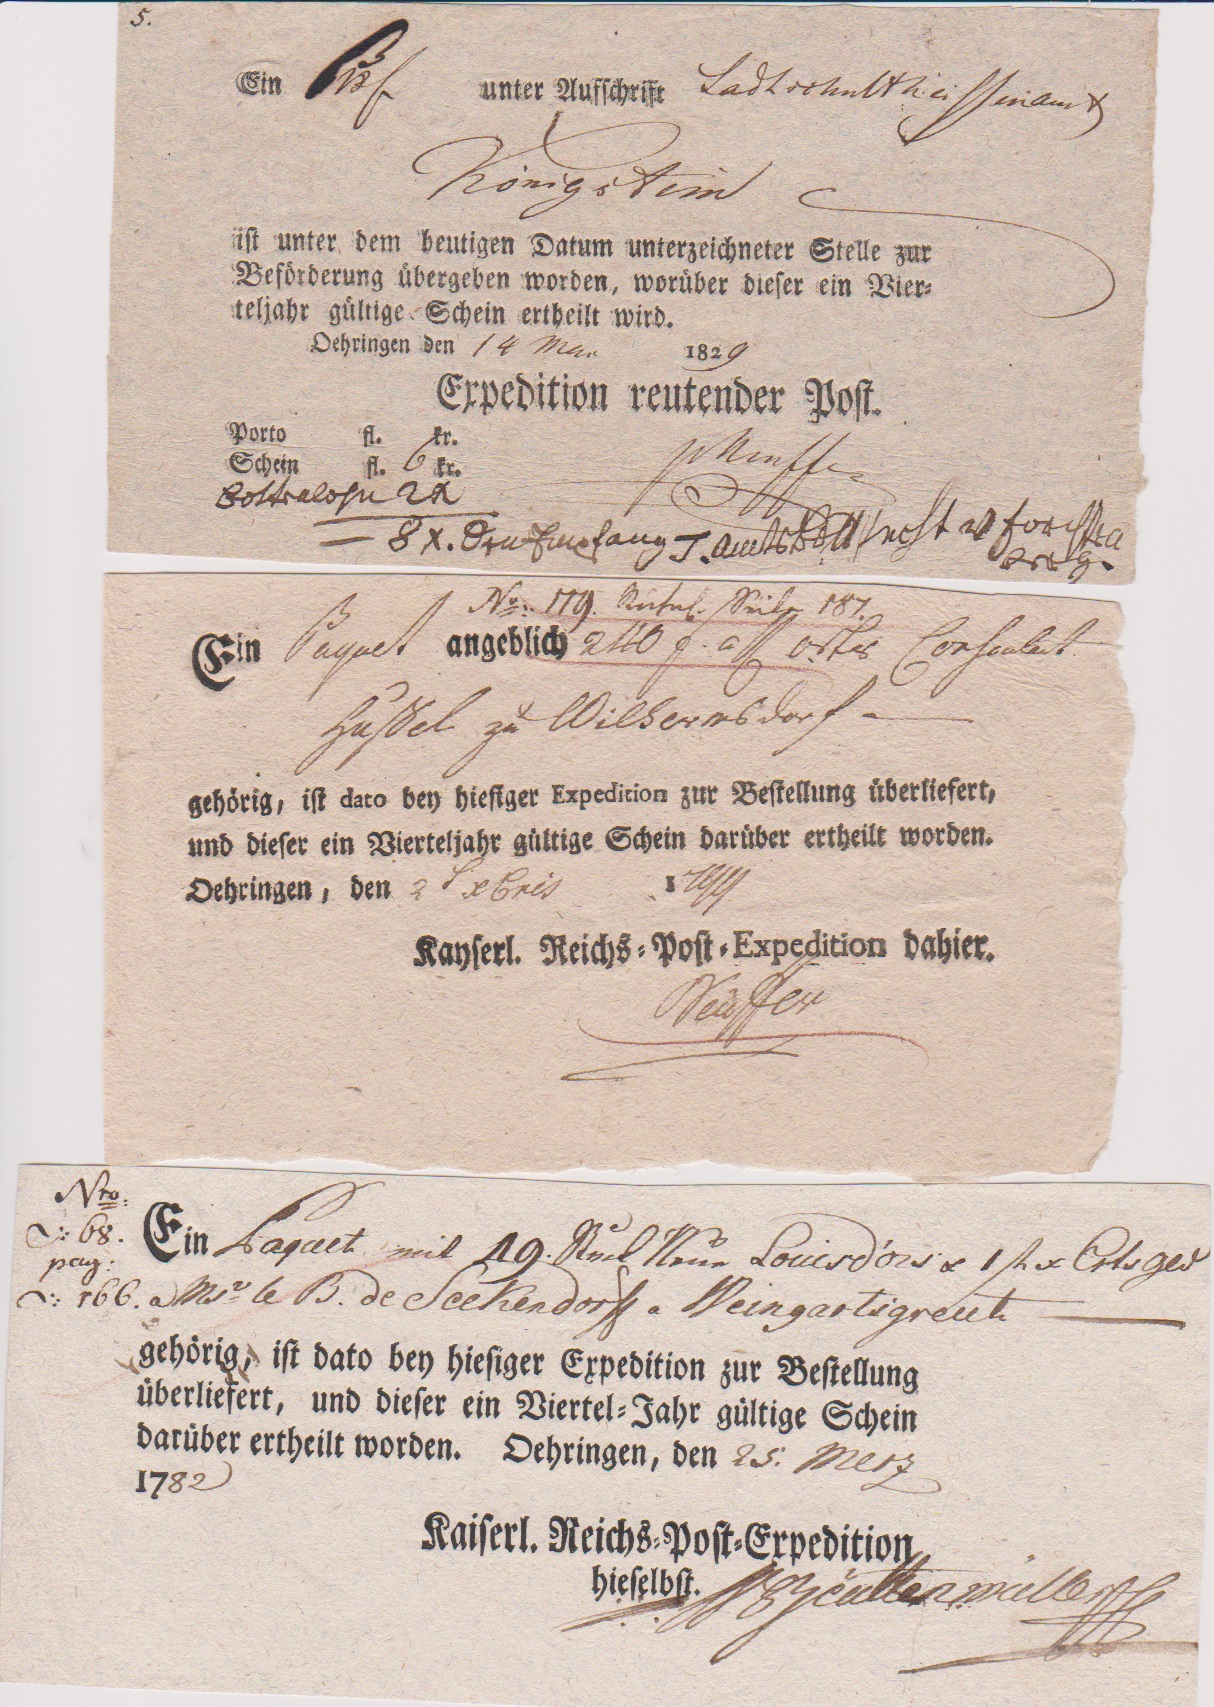 5.
Ein unter Aufschrift
Königstein
ist unter dem heutigen Datum unterzeichneter Stelle zur
Beförderung übergeben worden, worüber dieser ein Vier-
teljahr gültige Schein ertheilt wird.
Oehringen den 14 1829
Expedition reutender Post.
Porto fl. kr.
Schein fl. 6 kr.
8 x. den Empfang
No. 119. 187.
Ein Paquet angeblich 240 f.
zu Wilhermsdorf
gehörig, ist dato bey hiesiger Expedition zur Bestellung überliefert,
und dieser ein Vierteljahr gültige Schein darüber ertheilt worden.
Oehringen, den 2 Xbris 1799
Kayserl. Reichs-Post-Expedition dahier.
Neuffer
Nro.
68.
pag:
166.
Ein Paquet mit 49. Louisdors
a Msr le B. de Seckendorff a Weingartsgreuth
gehörig, ist dato bey hiesiger Expedition zur Bestellung
überliefert, und dieser ein Viertel-Jahr gültige Schein
darüber ertheilt worden. Oehringen, den 25. Merz
1782
Kaiserl. Reichs-Post-Expedition
hieselbst.